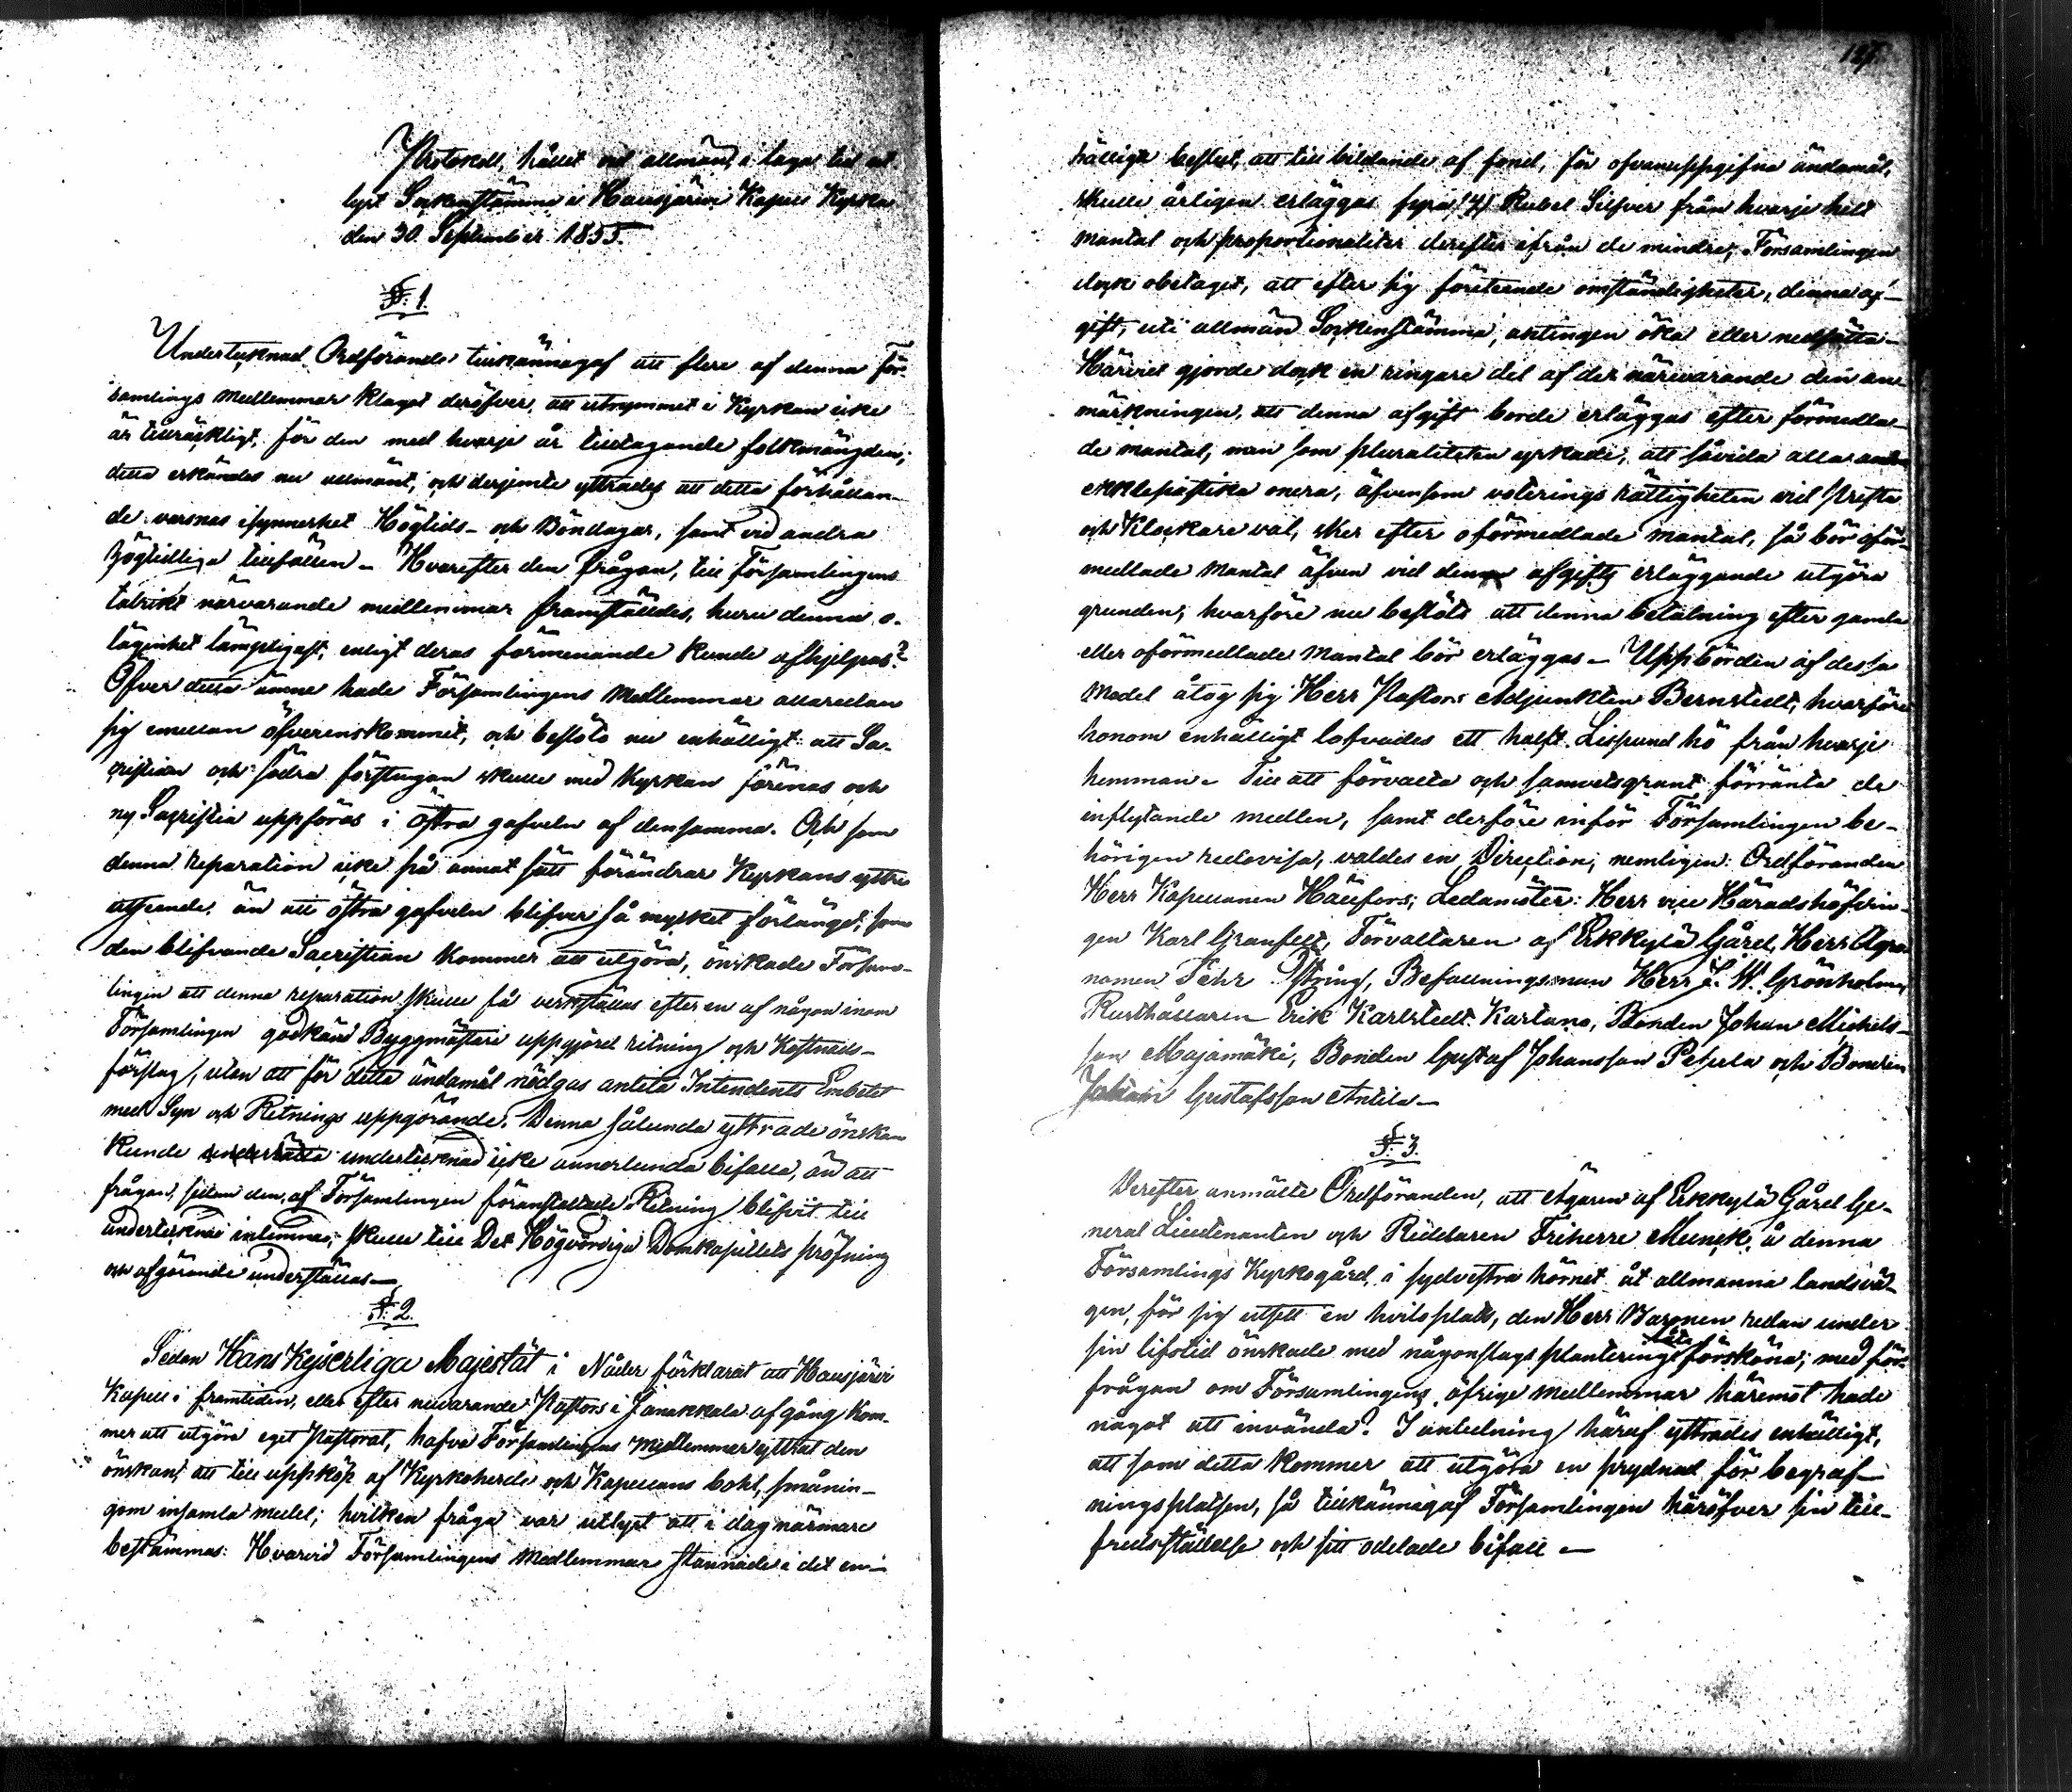 Protokoll, hållet vid allmän, i laga tid ut
lyst Sockenstämma i Hausjärvi Kapell Kyrka
den 30 September 1855.
§. 1.
Undertecknad Ordförande tillkännagaf att flere af denna För-
samlings medlemmar klagat deröfver, att utrymmet i Kyrkan icke
är tillräckligt, för den med hvarje år tilltagande folkmängden;
detta erkändes nu allmänt, och derjemte yttrades att detta förhållan-
de varsnas isynnerhet Högtids- och Böndagar, samt vid andra
högtidliga tillfällen - Hvarefter den frågan, till Församlingens
talrikt närvarande medlemmar framställdes, huru denna o-
lägenhet lämpligast, enligt deras förmenande kunde afhjelpas?
Öfver detta ämne hade Församlingens Medlemmar allaredan
sig emellan öfverenskommit, och beslöto nu enhälligt: att Sa-
cristian och södra förstugan skulle med Kyrkan förenas och
ny Sacristia uppföras i östra gafveln af densamma. Och som
denna reparation icke på annat sätt förändrar Kyrkans yttre
utseende, än att östra gafveln blifver så mycket förlängd, som
den blifvande Sacristian kommer att utgöra, önskade Försam-
lingen att denna reparation skulle få verkställas efter en af någon inom
Församlingen godkänd Byggmästare uppgjord ritning och Kostnads-
förslag, utan att för detta ändamål nödgas anlita Intendents Embetet
med Syn och Ritnings uppgörande. Denna sålunda yttrade önskan
kunde undertecknad icke annorlunda bifalla, än att
frågan, sedan den af Församlingen föranstaltade Ritning blifvit till
undertecknad inlemnad, skulle till Det Högvördiga Domkapitlets pröfning
och afgörande underställas -
§. 2.
Sedan Hans Kejserliga Majestät i Nåder förklarat att Hausjärvi
Kapell i framtiden, eller efter nuvarande Pastors i Janakkala afgång kom-
mer att utgöra eget Pastorat, hafva Församlingens Medlemmar yttrat den
önskan, att till uppköp af Kyrkoherde och Kapellans bohl, småning-
om insamla medel; hvilken fråga var utlyst att i dag närmare
bestämmas: Hvarvid Församlingens Medlemmar stannade i det en-
hälliga beslut, att till bildande af fond, för ofvanuppgifna ändamål,
skulle årligen erläggas fyra /4/ Rubel Silfver från hvarje helt
mantal och proportionaliter derefter ifrån de mindre; Församlingen
dock obetaget, att efter sig företeende omständigheter, denna af-
gift, uti allmän Sockenstämma, antingen öka eller nedsätta -
Härvid gjorde dock en ringare del af de närvarande den an-
märkningen, att denna afgift borde erläggas efter förmedla-
de mantal, men som pluraliteten yrkade, att såvida alla andra
ecklesiastika onera, äfvensom voterings rättigheten vid Prest
och Klockare val, sker efter oförmedlade mantal, så bör oför-
medlade Mantal äfven vid denna afgifts erläggande utgöra
grunden; hvarföre nu beslöts att denna betalning efter gamla
eller oförmedlade Mantal bör erläggas - Uppbörden af dessa
Medel åtog sig Herr Pastors Adjunkten Bernstedt, hvarföre
honom enhälligt lofvades ett halft Lispund hö från hvarje
hemman - Till att förvalta och samvetsgrant förränta de
inflytande medlen, samt derföre inför Församlingen be-
hörigen redovisa, valdes en Direction; nemligen: Ordföranden
Herr Kapellanen Hällfors; Ledamöter: Herr vice Häradshöfdin-
gen Karl Granfelt, Förvaltaren af Erkkylä Gård, Herr Agro-
nomen Fehr Befallningsman Herr L. W. Grönholm,
Rusthållaren Erik Karlstedt Kartano, Bonden Johan Michels-
son Majamäki, Bonden Gustaf Johansson Pehula och Bonden
Johan Gustafsson Anttila -
§. 3.
Derefter anmälte Ordföranden, att Ägaren af Erkkylä Gård Ge-
neral Lieutenanten och Riddaren Friherre Munck, å denna
Församlings Kyrkogård, i sydvestra hörnet åt allmänna landsvä-
gen, för sig utsett en hviloplats, den Herr Baronen redan under
sin lifstid önskade med någonslags plantering låta försköna; med för-
frågan om Församlingens öfrige medlemmar häremot hade
något att invända? I anledning häraf yttrades enhälligt,
att som detta kommer att utgöra en prydnad för begraf-
ningsplatsen, så tillkännagaf Församlingen häröfver sin till-
fredsställelse och sitt odelade bifall -